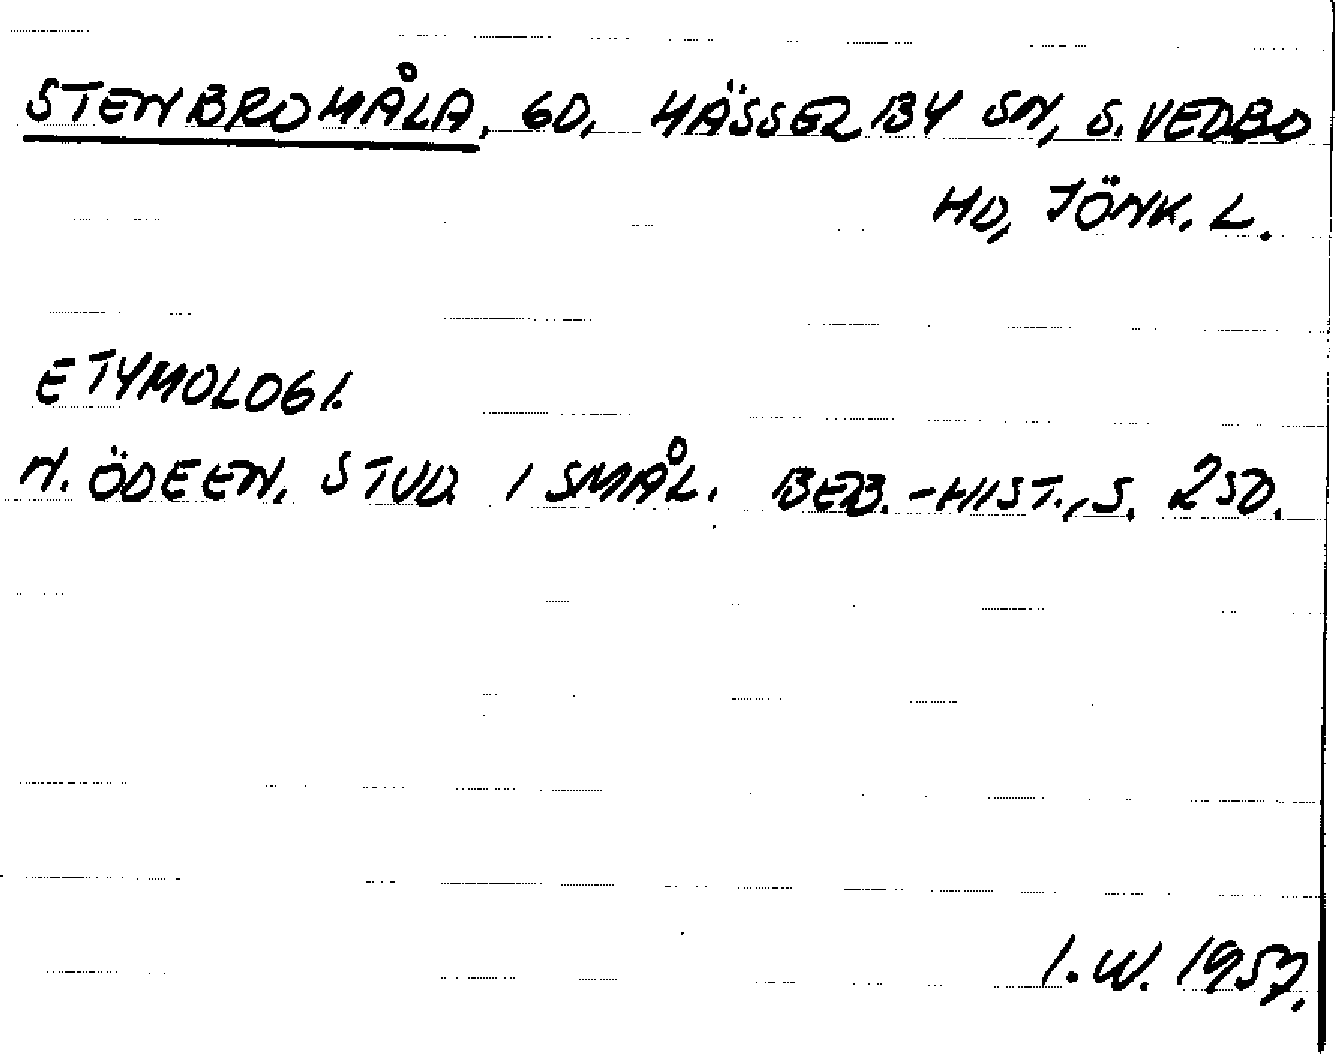 STENBROMÅLA, GD, HÄSSLEBY SN, S. VEDBO
HD, JÖNK. L.
ETYMOLOGI.
N. ÖDEEN, STUD. I SMÅL. BEB.-HIST., S. 250.
I.W. 1957.